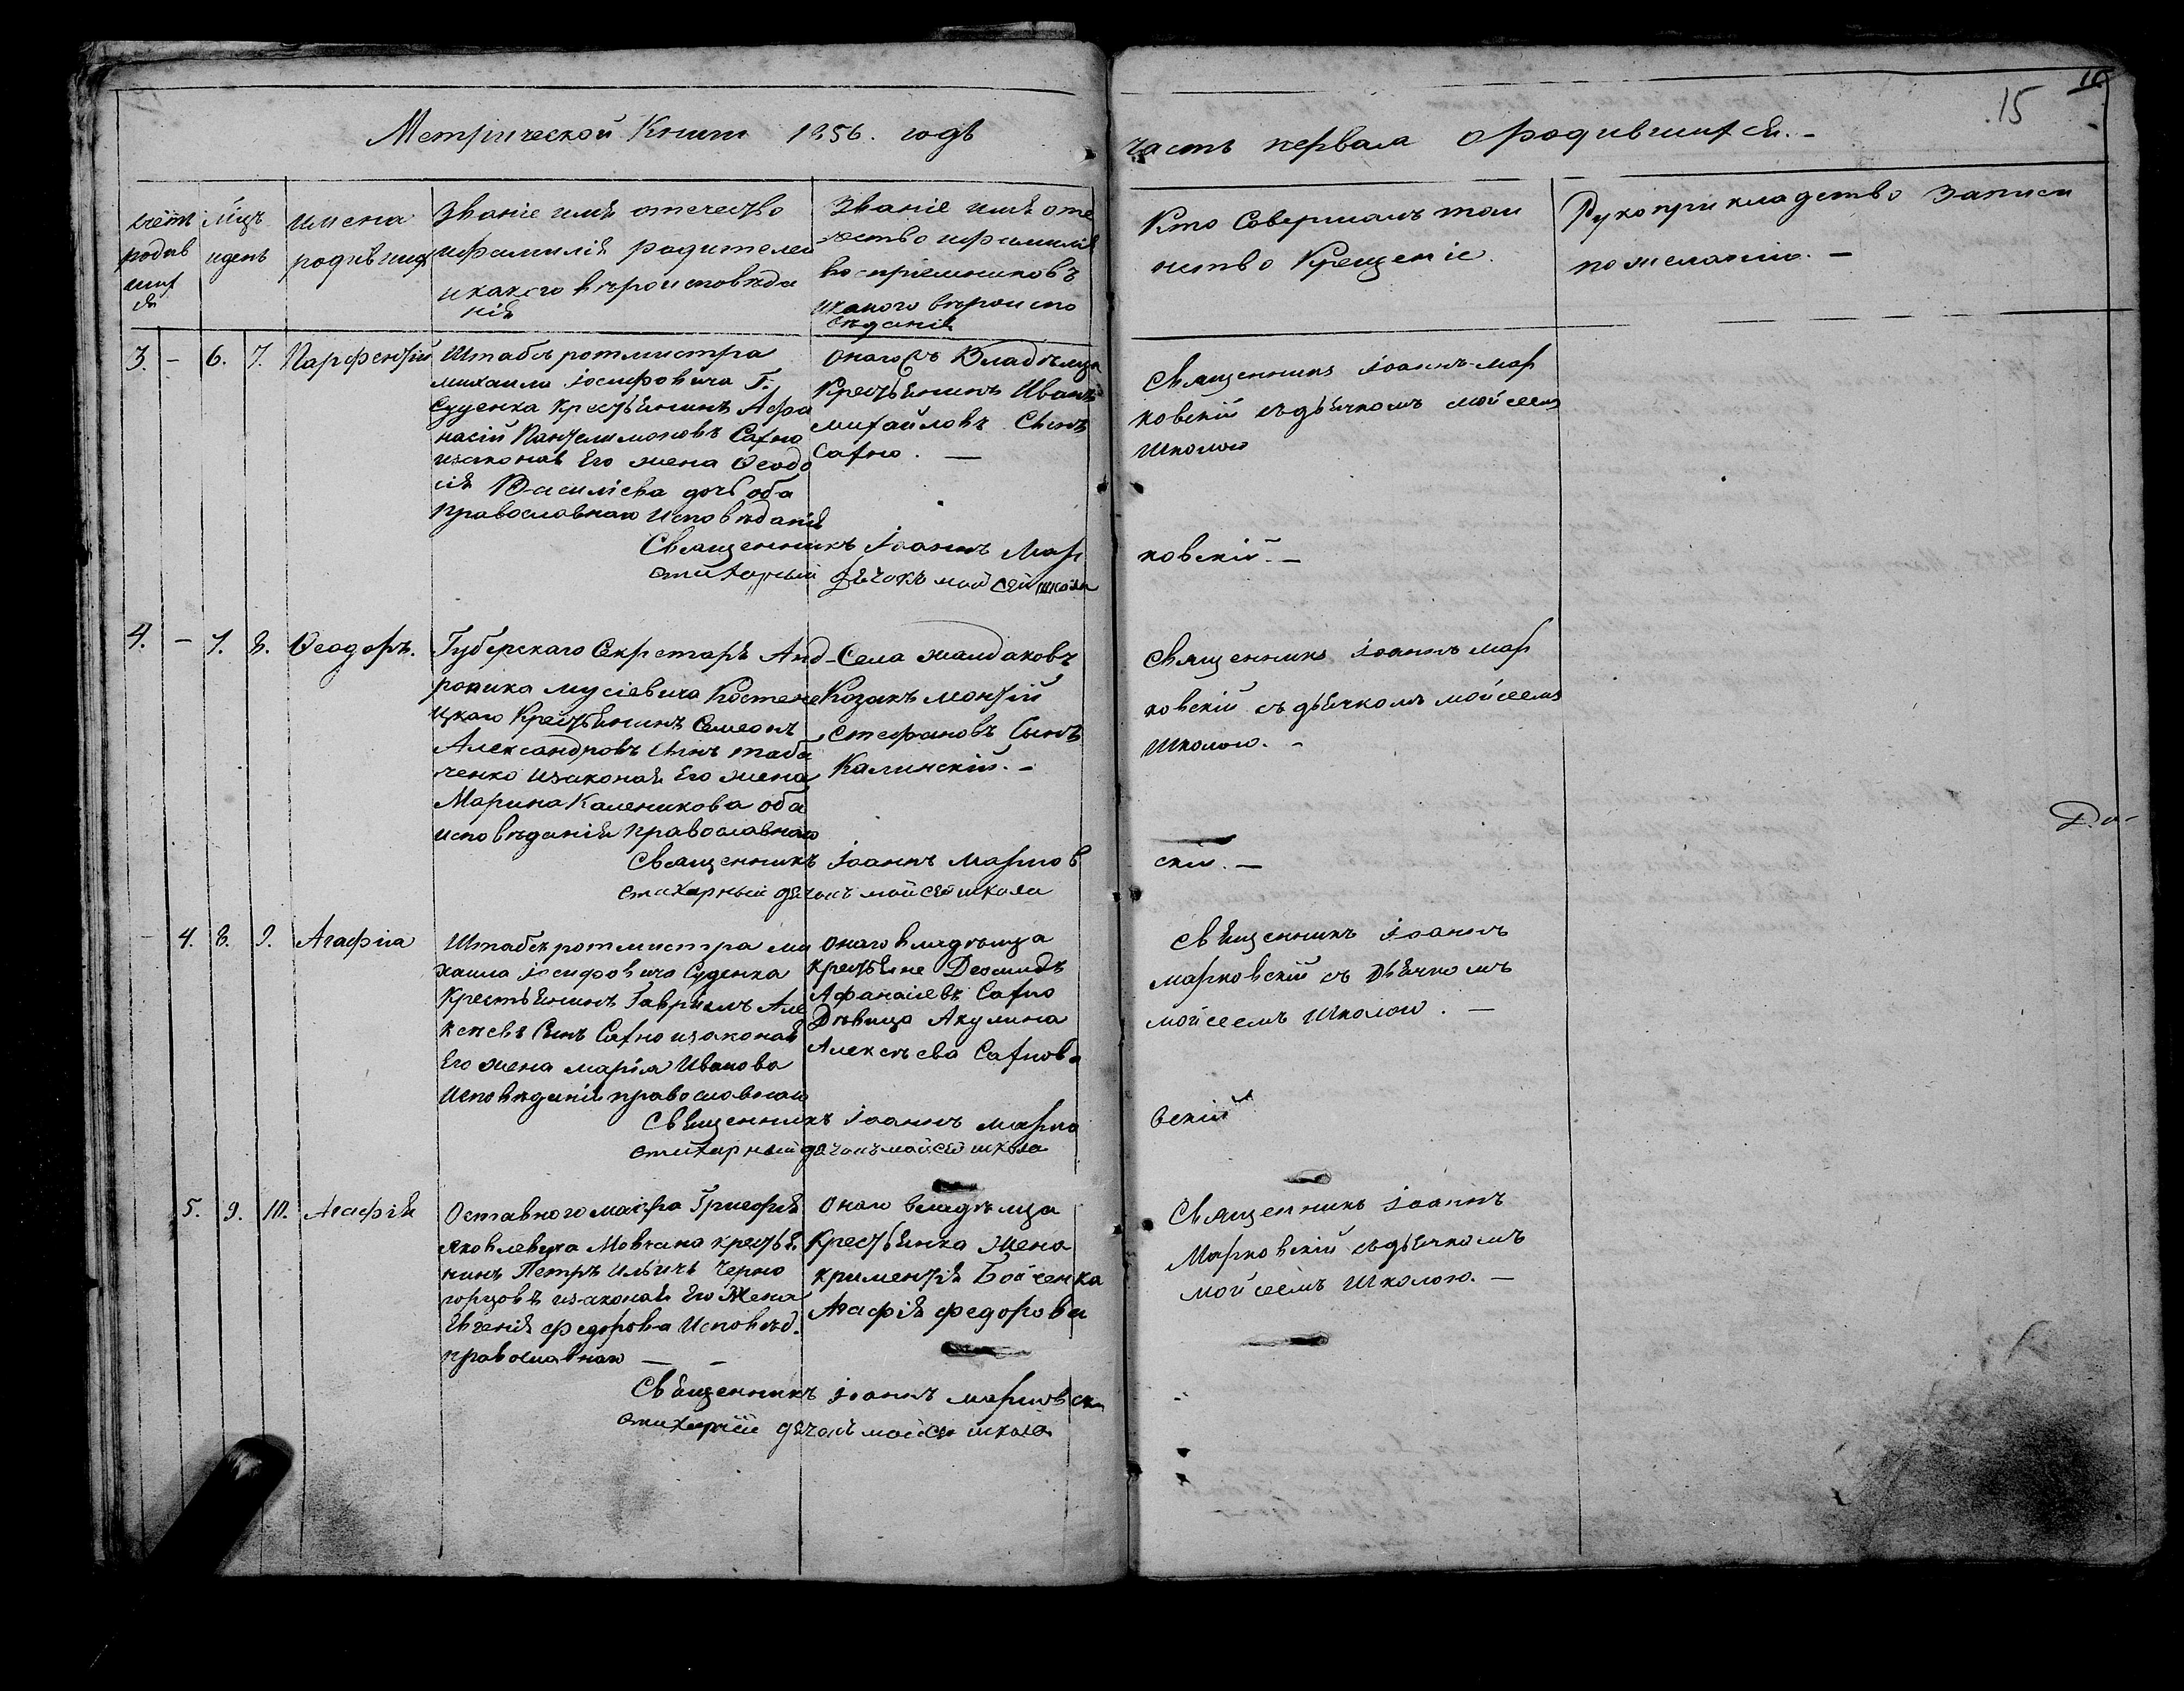 15
Метрической Книги 1856. годѣ
часть первая о родившихся. –
счетъ родив шихся
мцъ и день
имена родившихся
Званіе имя отечество
и фамилія родителей
и какого вѣроисповѣда
нія
Званіе имя оте
чество и фамилія
воспріемниковъ
и какого вѣроиспо
вѣданія
Кто Совершалъ таи
нство Крещеніе.
Рукоприкладство записи
по желанію. –
3. – 6. 7. Парфентій
Штабсъ ротмистра
михаила Іосифовича Г.
Суденка Крестьянинъ Афа
насій Пантелимоновъ Сахно
изаконая Его жена Ѳеодо
сія Василіева дочь оба
православнаго Исповѣданія
Онаго Владѣльца
Крестьянинъ Иванъ
михайловъ Сынъ
Сахно. –
Священникъ Іоаннъ Мар
ковскій съ дьячкомъ мойсеемъ
Школою
Священникъ Іоаннъ Мар
ковскій. –
стихарный дячокъ мойсей школа
4. – 7. 8. Ѳеодоръ.
Губерскаго Секретаря Анд
роника мусіевича Костене
цкаго Крестьянинъ Семеонъ
Александровъ Сынъ
ченко изаконая Его жена
Марина Каленикова оба
исповѣданія православнаго
Села жалдаковъ
Козакъ
Стефановъ Сынъ
Калинскій. –
Священникъ Іоаннъ мар
ковскій съ дьячкомъ мойсеемъ
Школою. –
Священникъ Іоаннъ Марков
скій. –
стихарный дячокъ мойсей школа
– 4. 8. 9. Агафіа
Штабсъ ротмистра ми
хаила Іосифовича Суденка
Крестьянинъ Гавріилъ Але
ксѣевъ Сынъ Сахно изаконая
Его жена марія Иванова
Исповѣданія православнаго
онаго владѣльца
крестьяне Деомидъ
Афанасіевъ Сахно
Дѣвица Акулина
Алексѣева Сахнова
Священникъ Іоаннъ
марковскій съ дьячкомъ
мойсеемъ Школою. –
Священникъ Іоаннъ Марко
вскій
стихарный дячокъ мойсей школа
5. 9. 10. Агафія
Оставного маіора Григорія
Яковлевича Мовчана крестья
нинъ Петръ Ильичъ Черно
горцовъ изаконая Его Жена
Евгенія федорова Исповѣд.
православнаго – –
Онаго владѣльца
Крестьянка Жена
климентія Бойченка
Агафія федорова
Священникъ Іоаннъ
Марковскій съ дьячкомъ
мойсеемъ Школою. –
Священникъ Іоаннъ марковскій
стихарній дячокъ мойсей школа